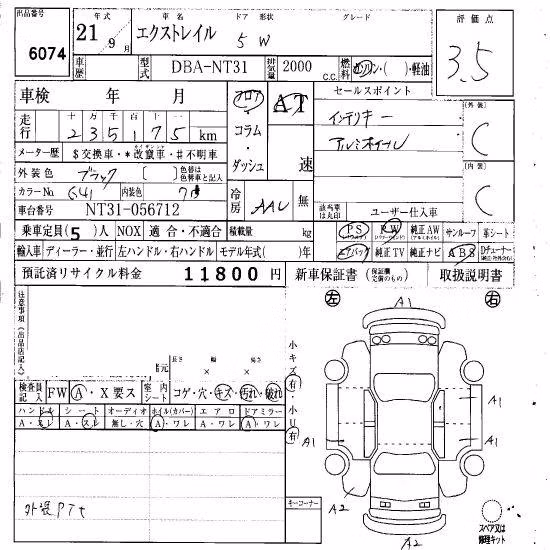 出品番号 年式 車名 ドア 形状 グレード 評価点
6074 21年9月 エクストレイル 5 W 3.5
車歴 型式 DBA-NT31 排気量 2000 C.C. 燃料 ガソリン・( )・軽油
車検 年 月 フロア・コラム・ダッシュ AT 速 セールスポイント
走行 十万 万 千 百 十 一
235175 km
インテリキー
アルミホイール
外装 C
メーター歴 $交換車・*改竄車・#不明車
外装色 ブラック [ ] 色替は色替車と記入
カラーNo. G41 内装色 冷房 AAC 無
内装 C
車台番号 NT31-056712 該当装備は丸印 ユーザー仕入車
乗車定員(5)人 NOX 適合・不適合 積載量 kg PS PW 純正AW サンルーフ 革シート
輸入車 ディーラー・並行 左ハンドル・右ハンドル モデル年式( )年 エアバック 純正TV 純正ナビ ABS Dチューナー
預託済リサイクル料金 11800円 新車保証書 (保証継 交換のもの) 取扱説明書
注意事項(出品店記入)
左 A1 右
諸元 長さ 幅 高さ
小キズ 有 小U 有
検査員記入 FW A・X要ス 室内シート コゲ・穴・キズ・汚れ・破れ
ハンドル シート オーディオ ホイル(カバー) エアロ ドアミラー
A・スレ A・スレ 無し・穴 A・ワレ A・ワレ A・ワレ
A1 A1
A1
外装Pナセ
キーコーナー
A2 A2
スペア又は修理キット